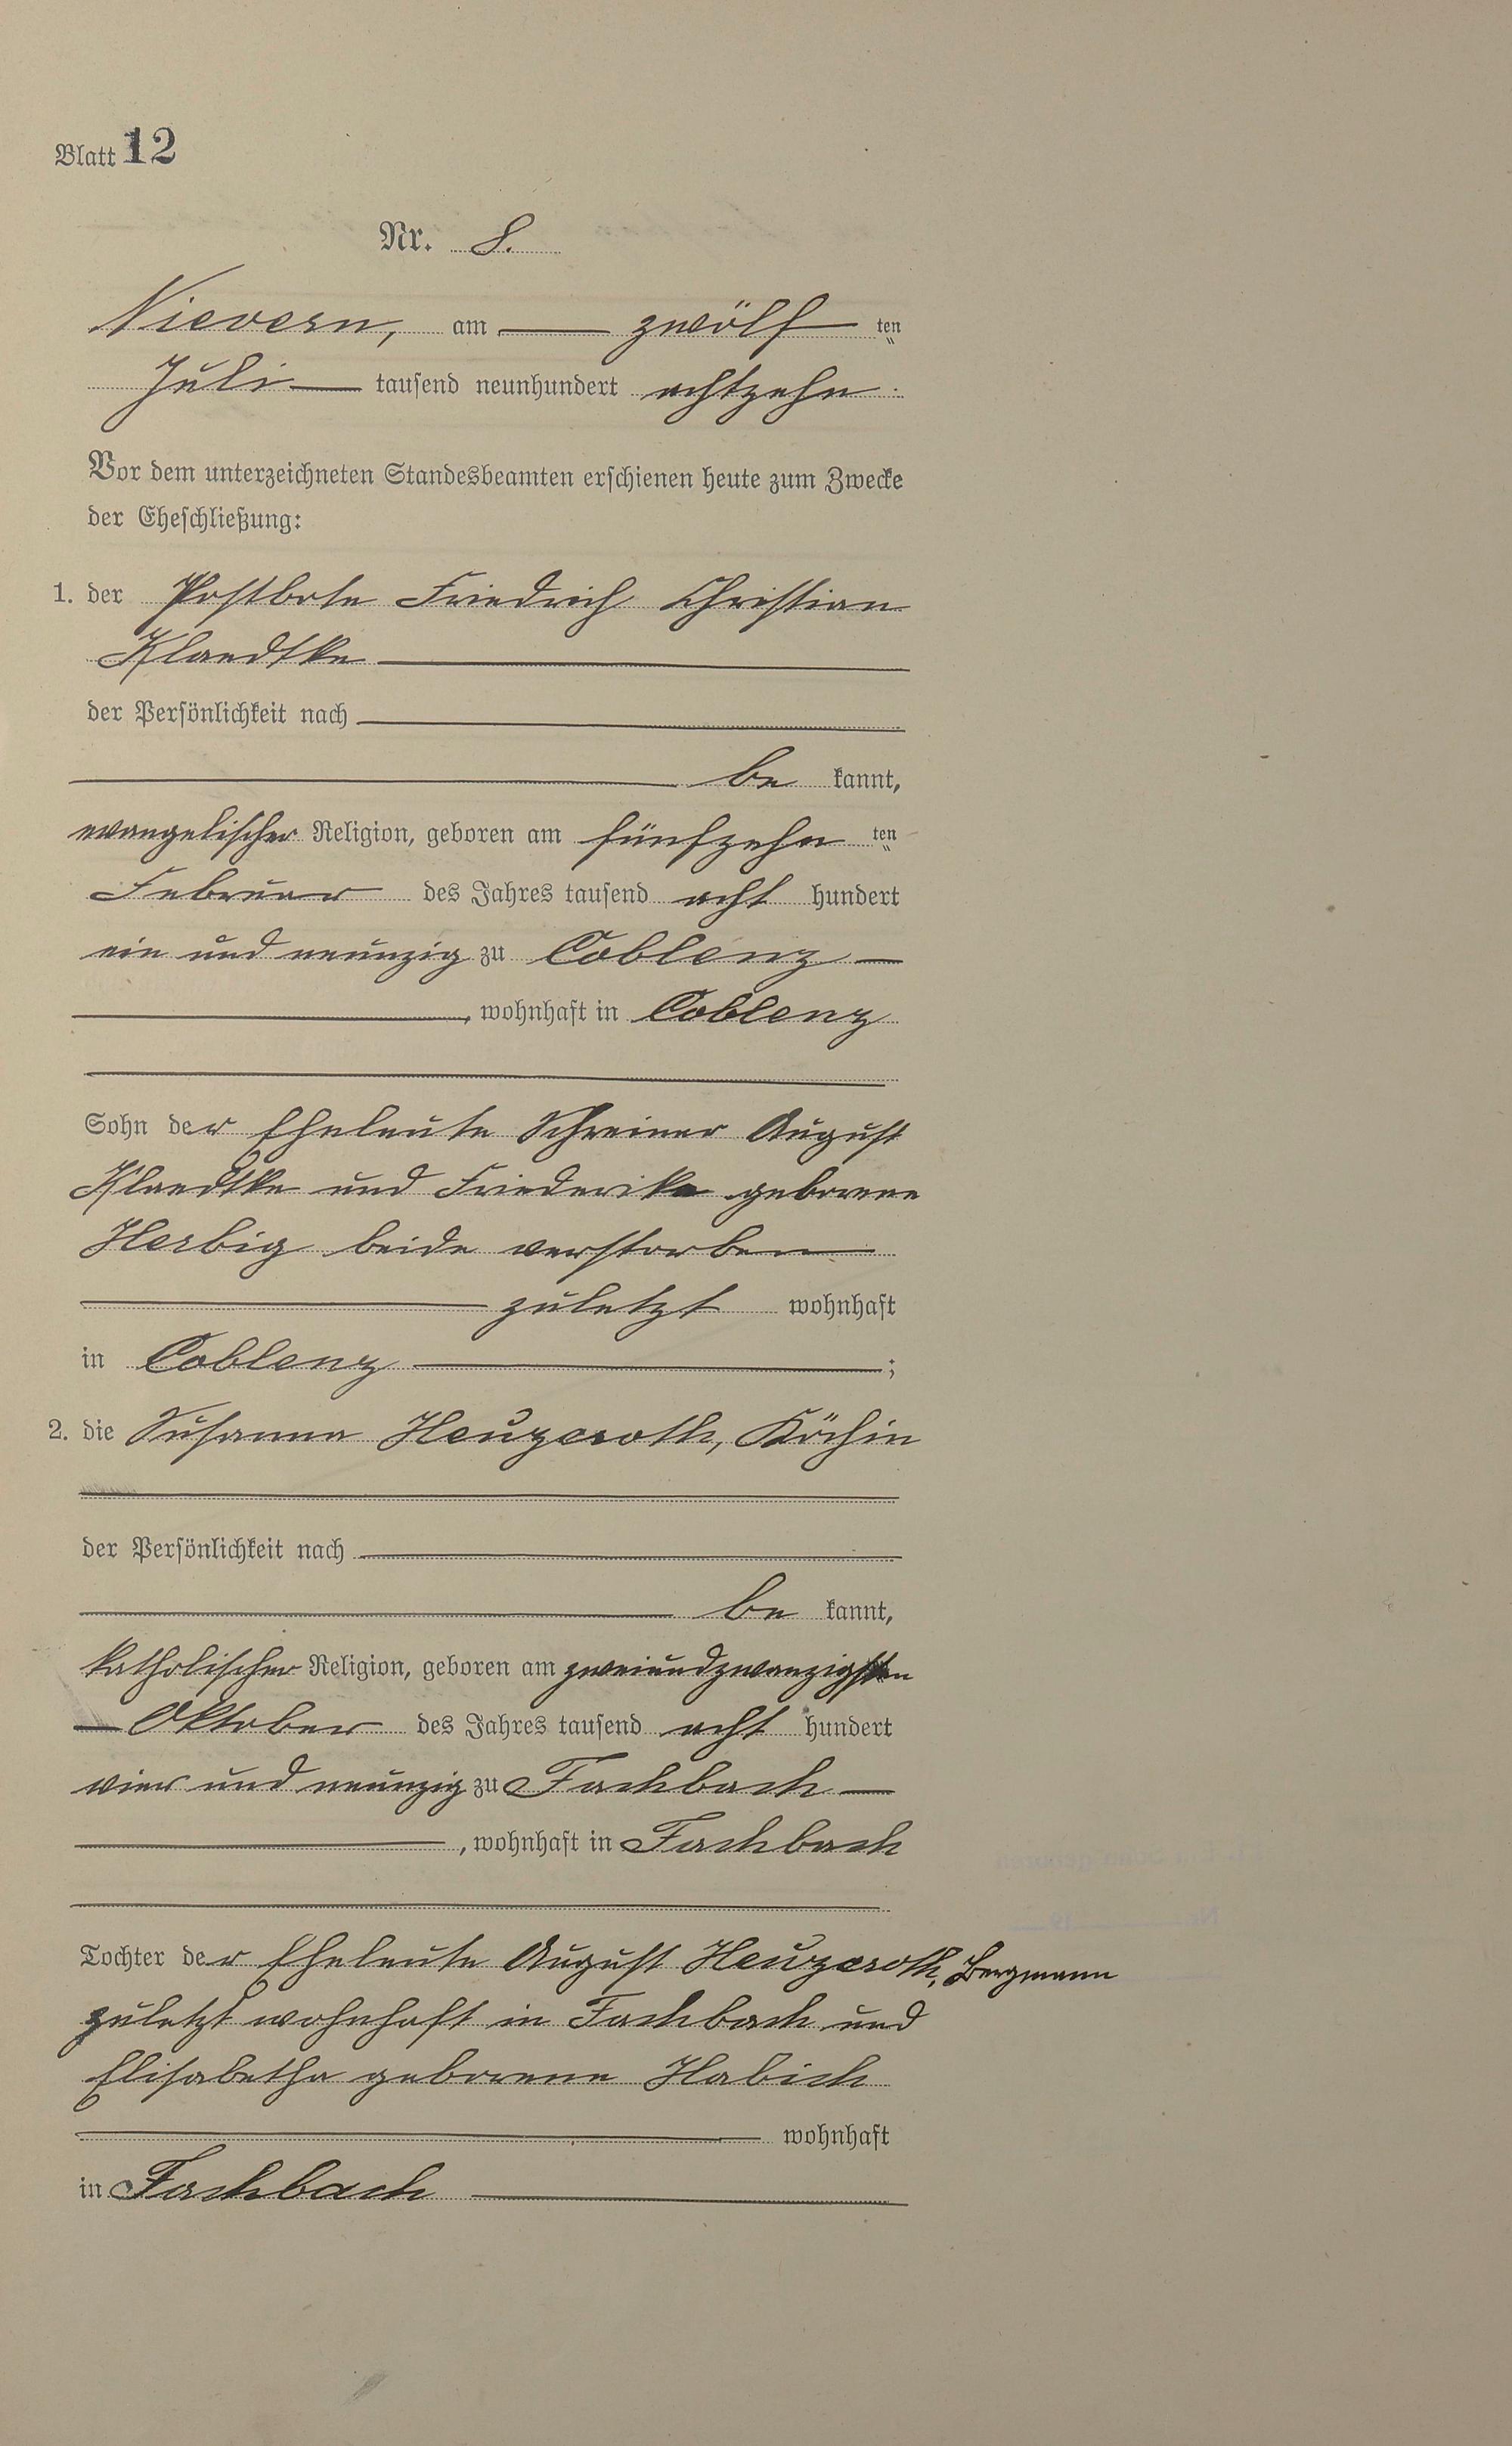 Blatt 12
Nr. 8.
Nievern, am zwölf ten
Juli tausend neunhundert achtzehn.
Vor dem unterzeichneten Standesbeamten erschienen heute zum Zwecke
der Eheschließung:
1. der Postbote Friedrich Christian
Klaedtke
der Persönlichkeit nach
be kannt,
evangelischer Religion, geboren am fünfzehn ten
Februar des Jahres tausend acht hundert
ein und neunzig zu Coblenz
, wohnhaft in Coblenz
Sohn der Eheleute Schreiner August
Klaedtke und Friederike geborene
Herbig beide verstorben
zuletzt wohnhaft
in Coblenz ;
2. die Susanna Heuzeroth, Köchin
der Persönlichkeit nach
be kannt,
katholischer Religion, geboren am zweiundzwanzigsten
Oktober des Jahres tausend acht hundert
vier und neunzig zu Fachbach
, wohnhaft in Fachbach
Tochter der Eheleute August Heuzeroth, Bergmann
zuletzt wohnhaft in Fachbach und
Elisabetha geborene Habich
wohnhaft
in Fachbach